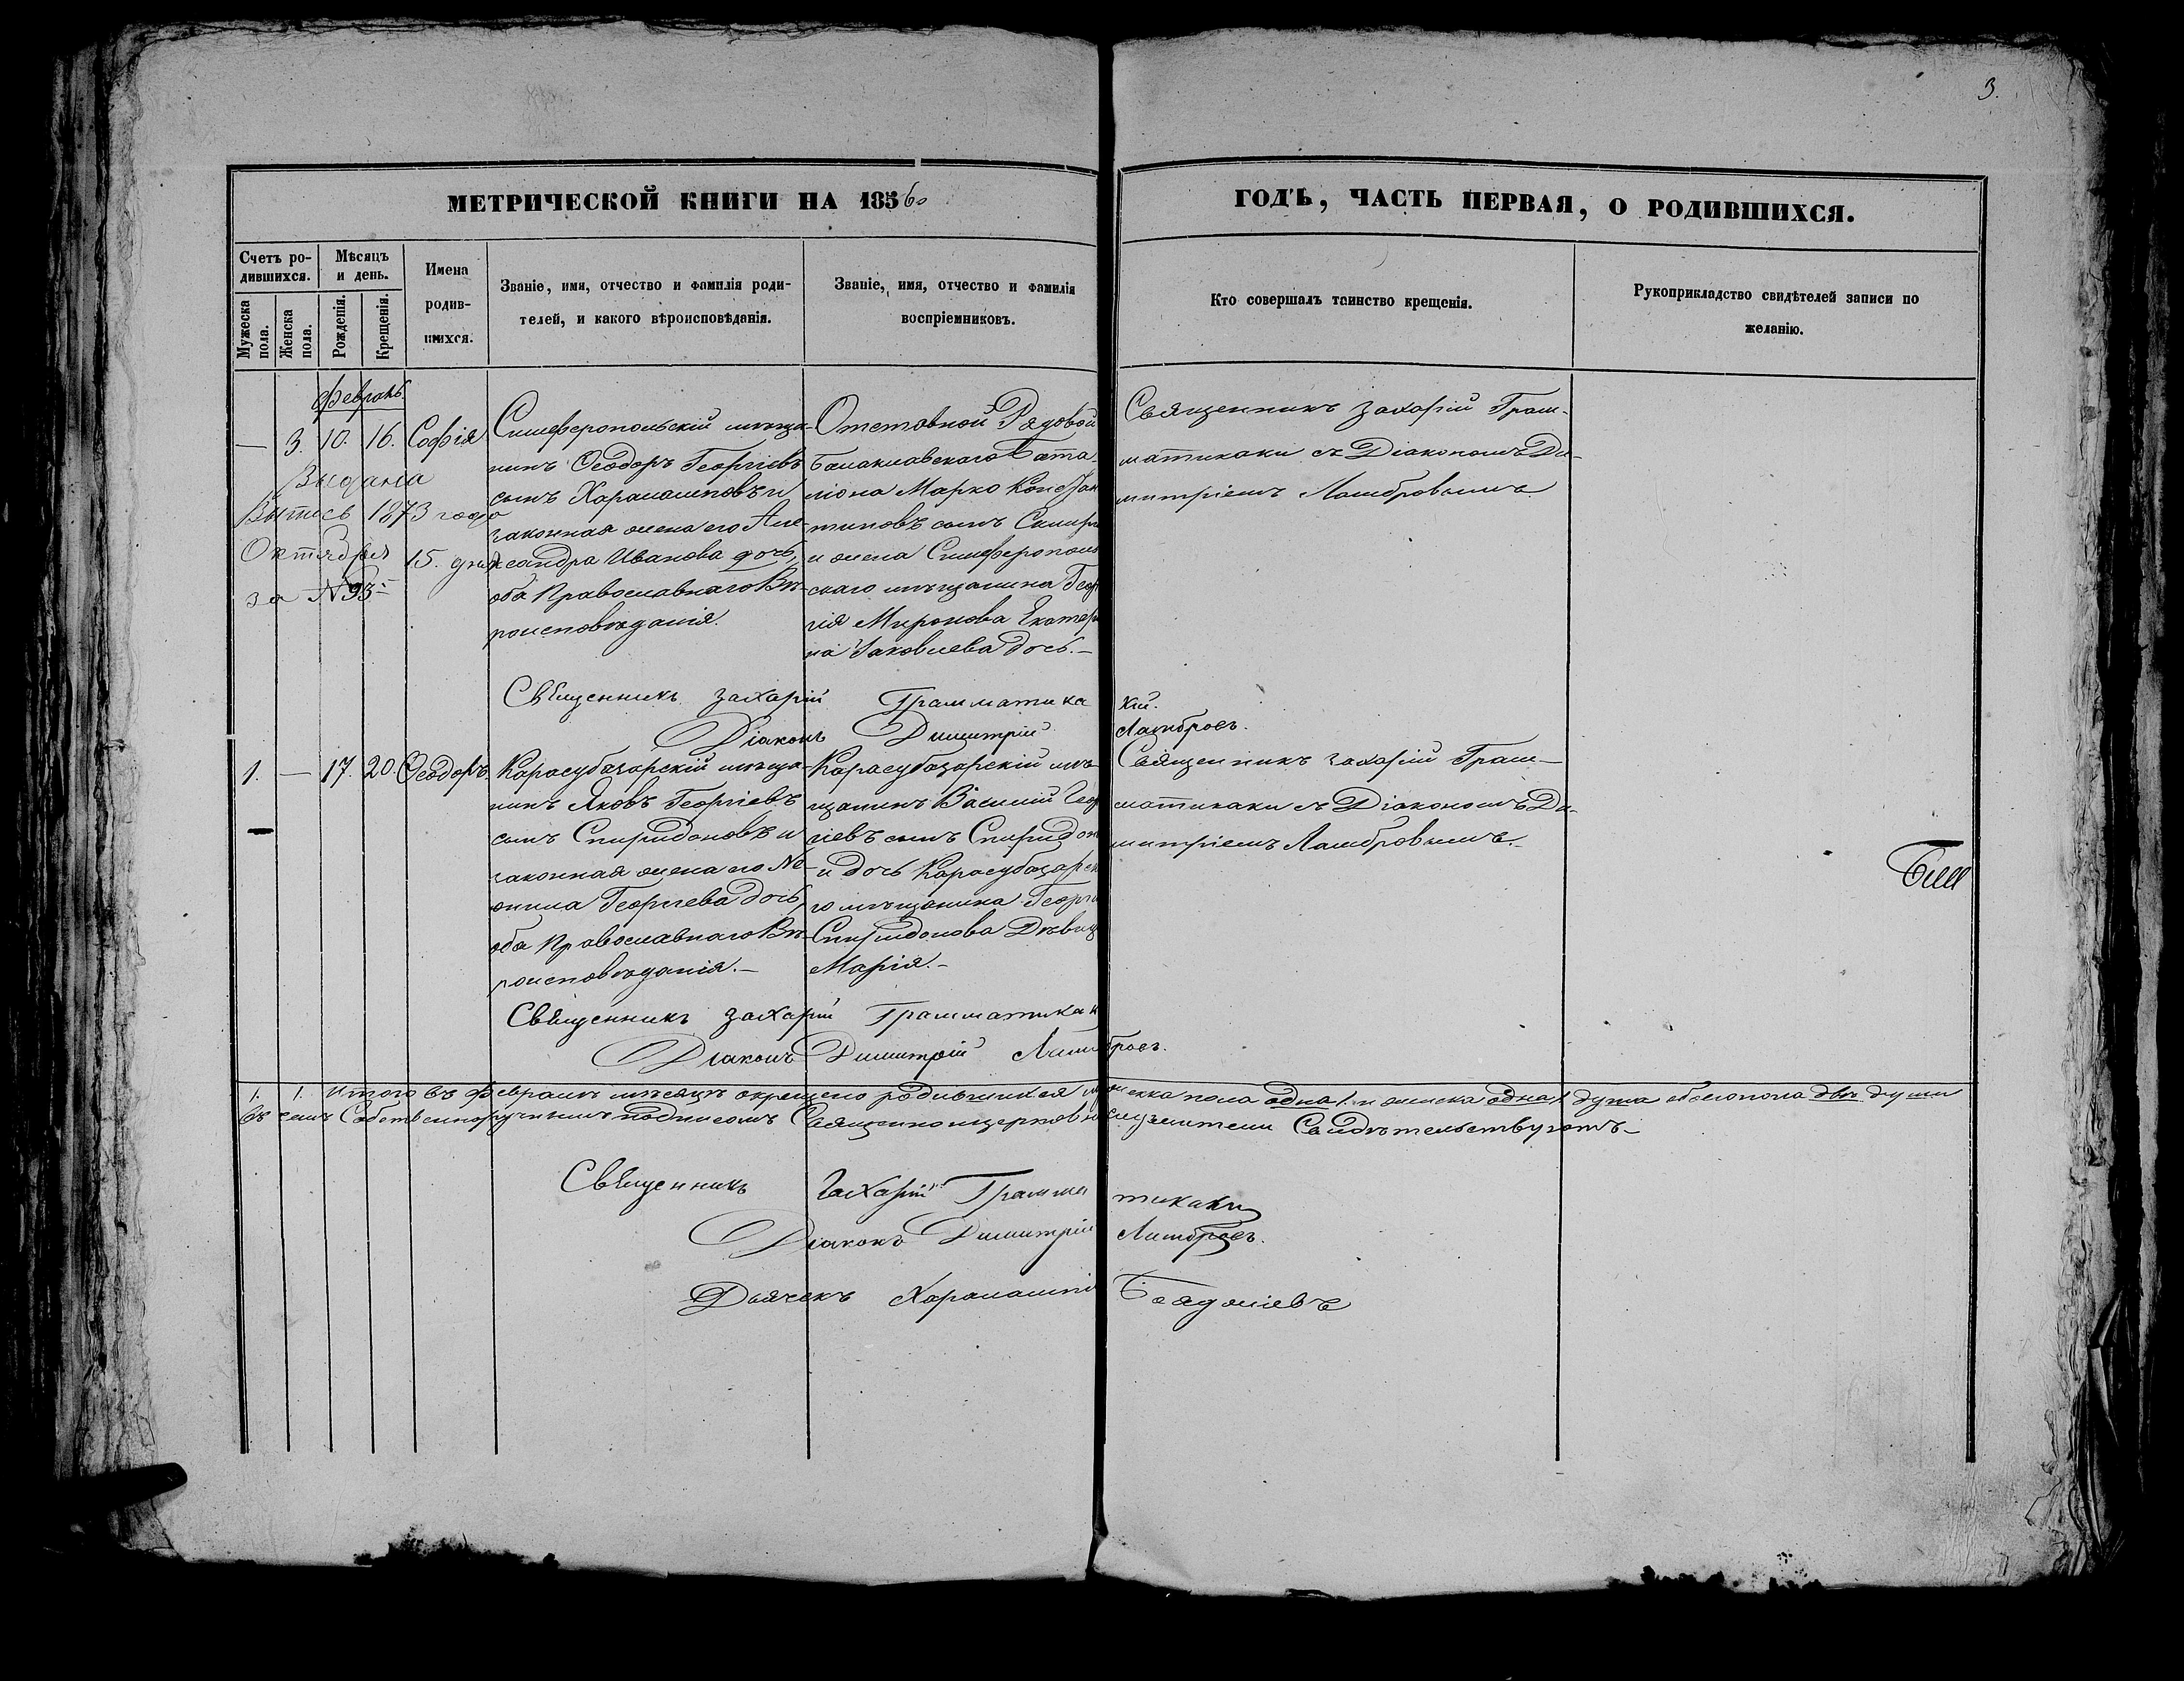 3.
МЕТРИЧЕСКОЙ КНИГИ НА 1856
ГОДЪ, ЧАСТЬ ПЕРВАЯ, О РОДИВШИХСЯ.
Счетъ ро-
дившихся.
Мѣсяцъ
и день.
Мужеска
пола.
Женска
пола.
Рожденія.
Крещенія.
Имена
родив-
шихся.
Званіе, имя, отчество и фамилія роди-
телей, и какого вѣроисповѣданія.
Званіе, имя, отчество и фамилія
воспріемниковъ.
Кто совершалъ таинство крещенія.
Рукоприкладство свидѣтелей записи по
желанію.
— 3. 10. 16. Софія
Выдана
Выпись 1873 года
Октября 15. дня
за № 93
Симферопольскій мѣща-
нинъ Ѳеодоръ Георгіевъ
сынъ Хараламповъ и
законная жена его Але-
ксандра Иванова дочь,
оба Православнаго Вѣ-
роисповѣданія.
Отставной Рядовой
Балаклавскаго Бата-
ліона Марко Констан
тиновъ сынъ
и жена Симферополь
скаго мѣщанина Геор
гія Миронова Екатери
на Яковлева дочь.—
Священникъ Захарій Грам-
матикаки съ Діакономъ Ди-
митріемъ Ламбровымъ
Священникъ Захарій Грамматика кій.
Діаконъ Димитрій Ламбровъ.
1. — 17. 20. Ѳеодоръ.
Карасубазарскій мѣща-
нинъ Яковъ Георгіевъ
сынъ Спиридоновъ и
законная жена его
Георгіева дочь,
оба Православнаго Вѣ-
роисповѣданія.—
Карасубазарскій мѣ-
щанинъ Василій Геор
гіевъ сынъ Спиридон
и дочь Карасубазарск
го мѣщанина Георгі
Спиридонова Дѣвиц
Марія.—
Священникъ Захарій Грам—
матикаки съ Діакономъ Ди-
митріемъ Ламбровымъ.—
Священникъ Захарій Грамматикак
Діаконъ Димитрій Ламбровъ.
1. 1. Итого въ Февралѣ мѣсяцѣ окрещено родившихся мужеска пола одна 1. и женска одна 1 душа обоего пола двѣ души
въ чемъ Собственноручнымъ подписомъ Священноцерковнослужители Свидѣтельствуютъ—
Священникъ Захарій Грамматикаки
Діаконъ Димитрій Ламбровъ.
Дьячекъ Харалампій